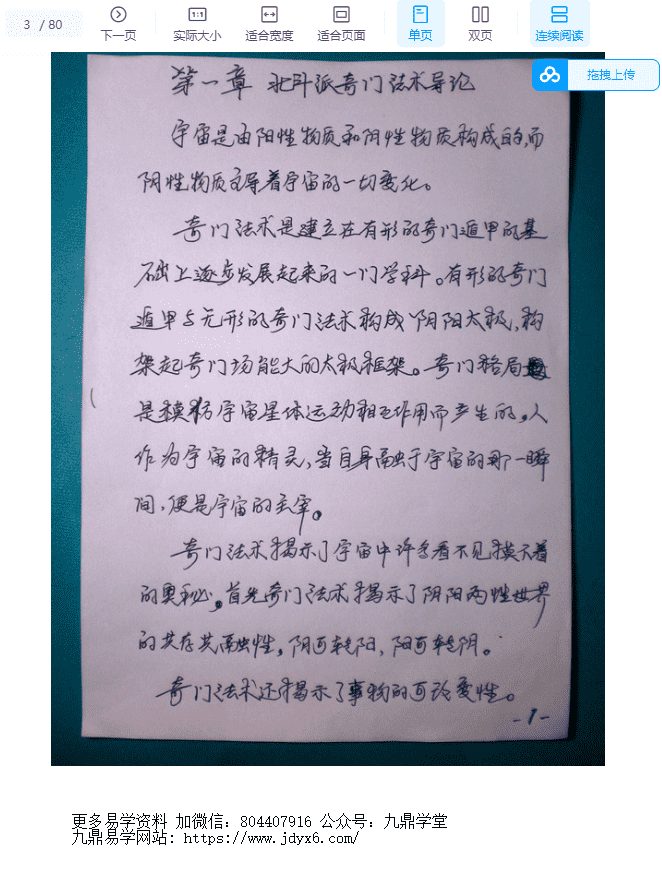 3 / 80
下一页
实际大小
适合宽度
适合页面
单页
双页
连续阅读
拖拽上传
第一章 北斗派奇门法术导论
宇宙是由阳性物质和阴性物质构成的,而
阴性物质主导着宇宙的一切变化。
奇门法术是建立在有形的奇门遁甲的基
础上逐步发展起来的一门学科。有形的奇门
遁甲与无形的奇门法术构成阴阳太极,构
架起奇门场能大的太极框架。奇门格局
是模仿宇宙星体运动相互作用而产生的。人
作为宇宙的精灵,当自身融于宇宙的那一瞬
间,便是宇宙的主宰。
奇门法术揭示了宇宙中许多看不见摸不着
的奥秘。首先奇门法术揭示了阴阳两性世界
的共存共融性,阴可转阳,阳可转阴。
奇门法术还揭示了事物的可改变性。
-1-
更多易学资料 加微信: 804407916 公众号: 九鼎学堂
九鼎易学网站: https://www.jdyx6.com/